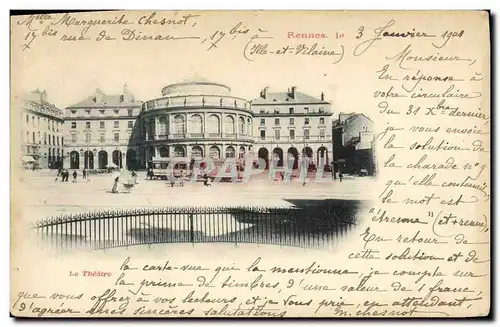 Melle Marguerite Chesnot,
17bis rue de Dinan, 17bis
(Ille-et-Vilaine)
Rennes. le 3 Janvier 1901
Monsieur,
En réponse à
votre circulaire
du 31 Xbre dernier
je vous envoie
la solution de
la charade no
qu'elle contenait
le mot est
"étrenne" (et+renne)
En retour de
cette solution et de
Le Théâtre
la carte-vue que la mentionne, je compte sur
la prime de timbres, d'une valeur de 1 franc,
que vous offrez à vos lecteurs, et je vous prie, en attendant,
d'agréer mes sincères salutations
M. Chesnot